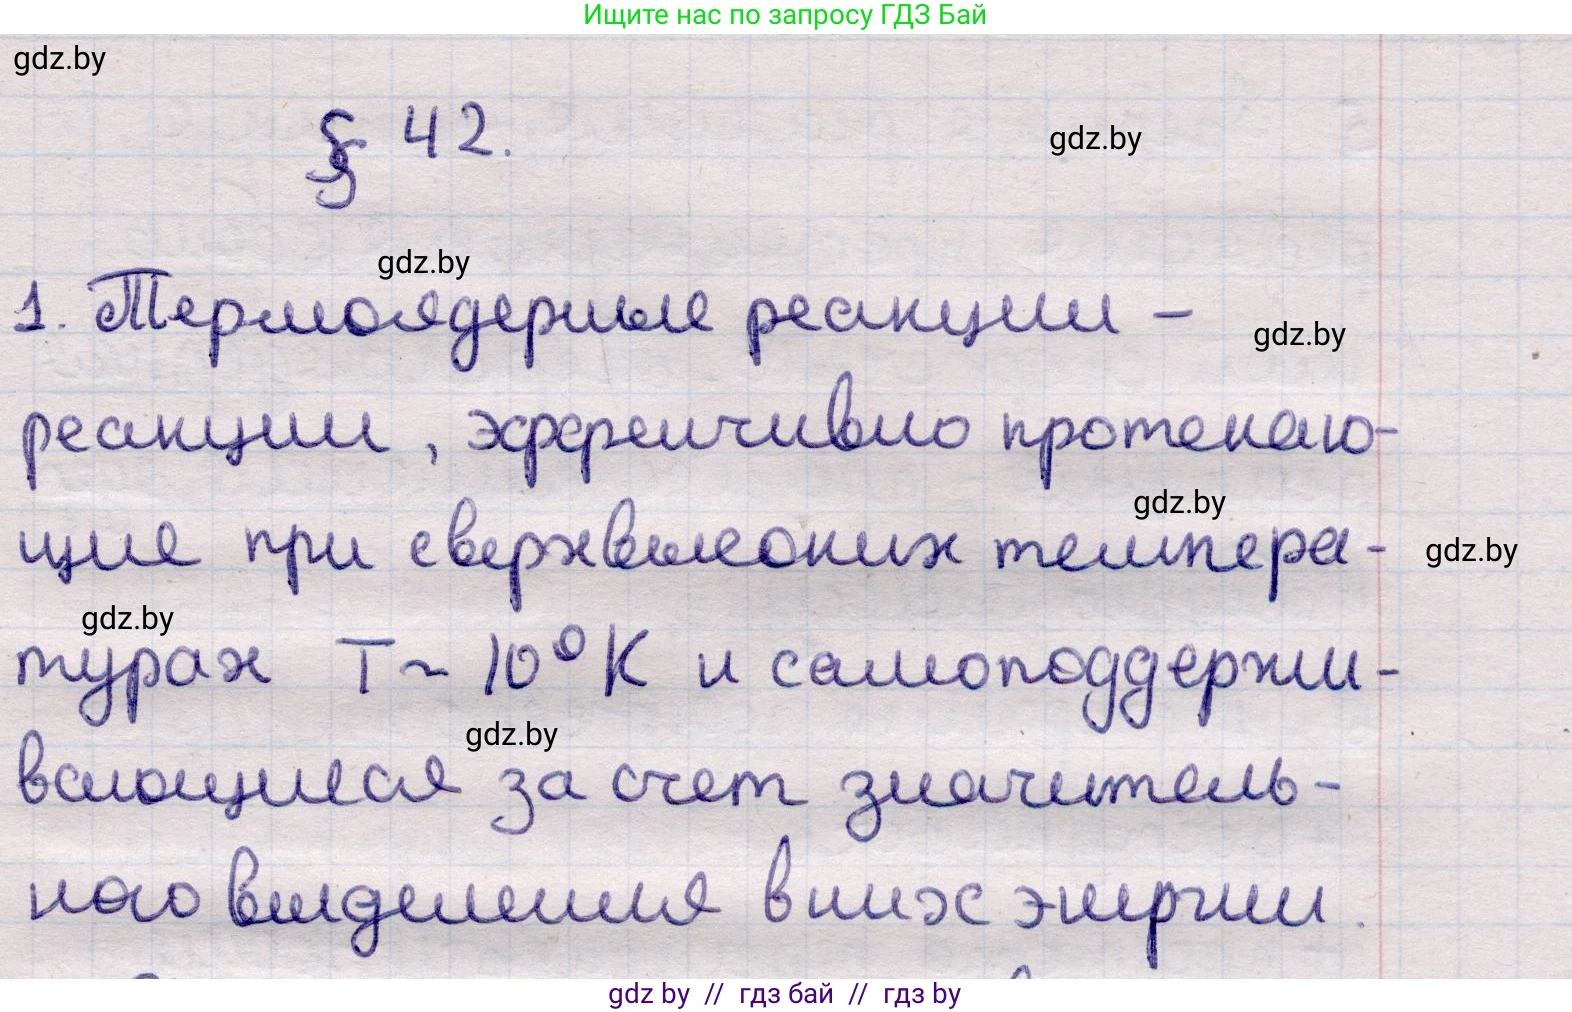 Ищите нас по запросу ГДЗ Бай
gdz.by
§ 42.
gdz.by
gdz.by
1. Термоядерные реакции –
gdz.by
реакции, эффективно протекаю-
gdz.by
щие при сверхвысоких темпера-
gdz.by
gdz.by
турах T ~ 10⁰ K и самоподдержи-
gdz.by
вающиеся за счет значитель-
ного выделения в них энергии.
gdz by // гдз бай // гдз by